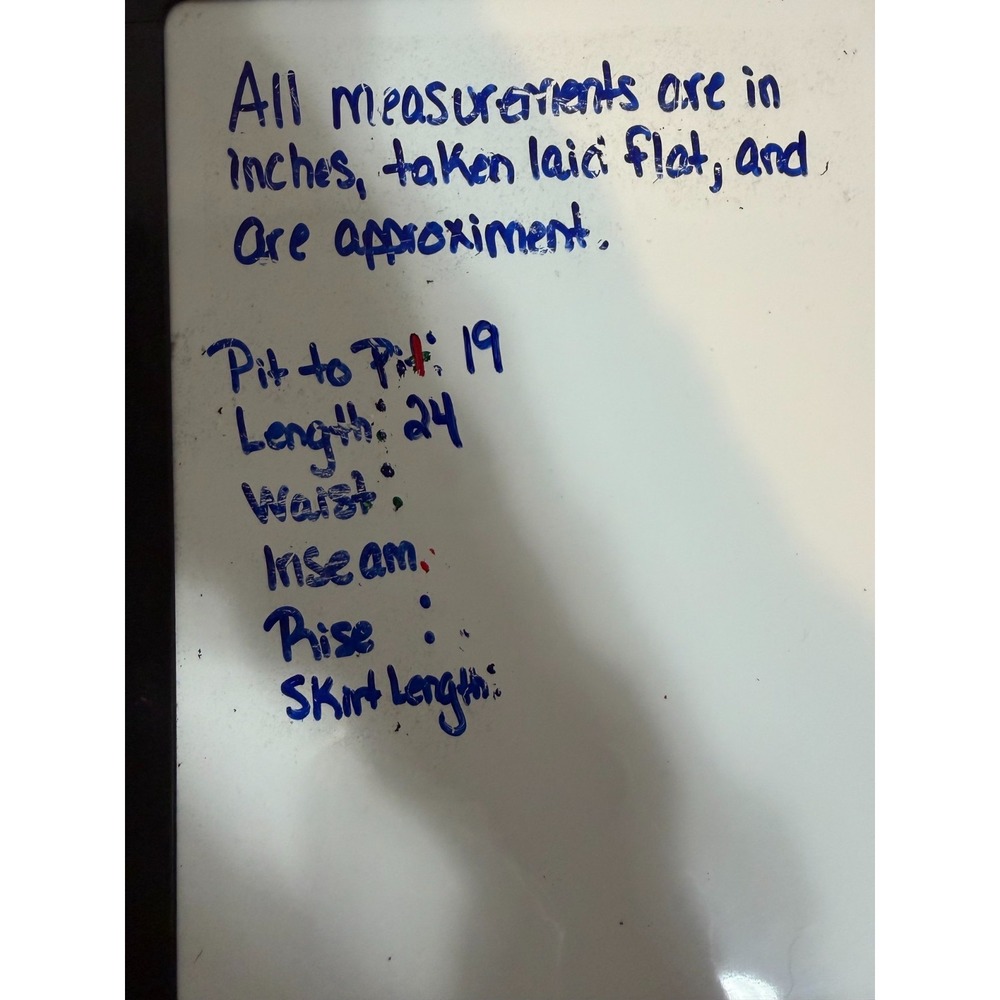 All measurements are in
inches, taken laid flat, and
are approximent.
Pit to Pit: 19
Length: 24
Waist:
Inseam:
Rise :
Skirt Length: